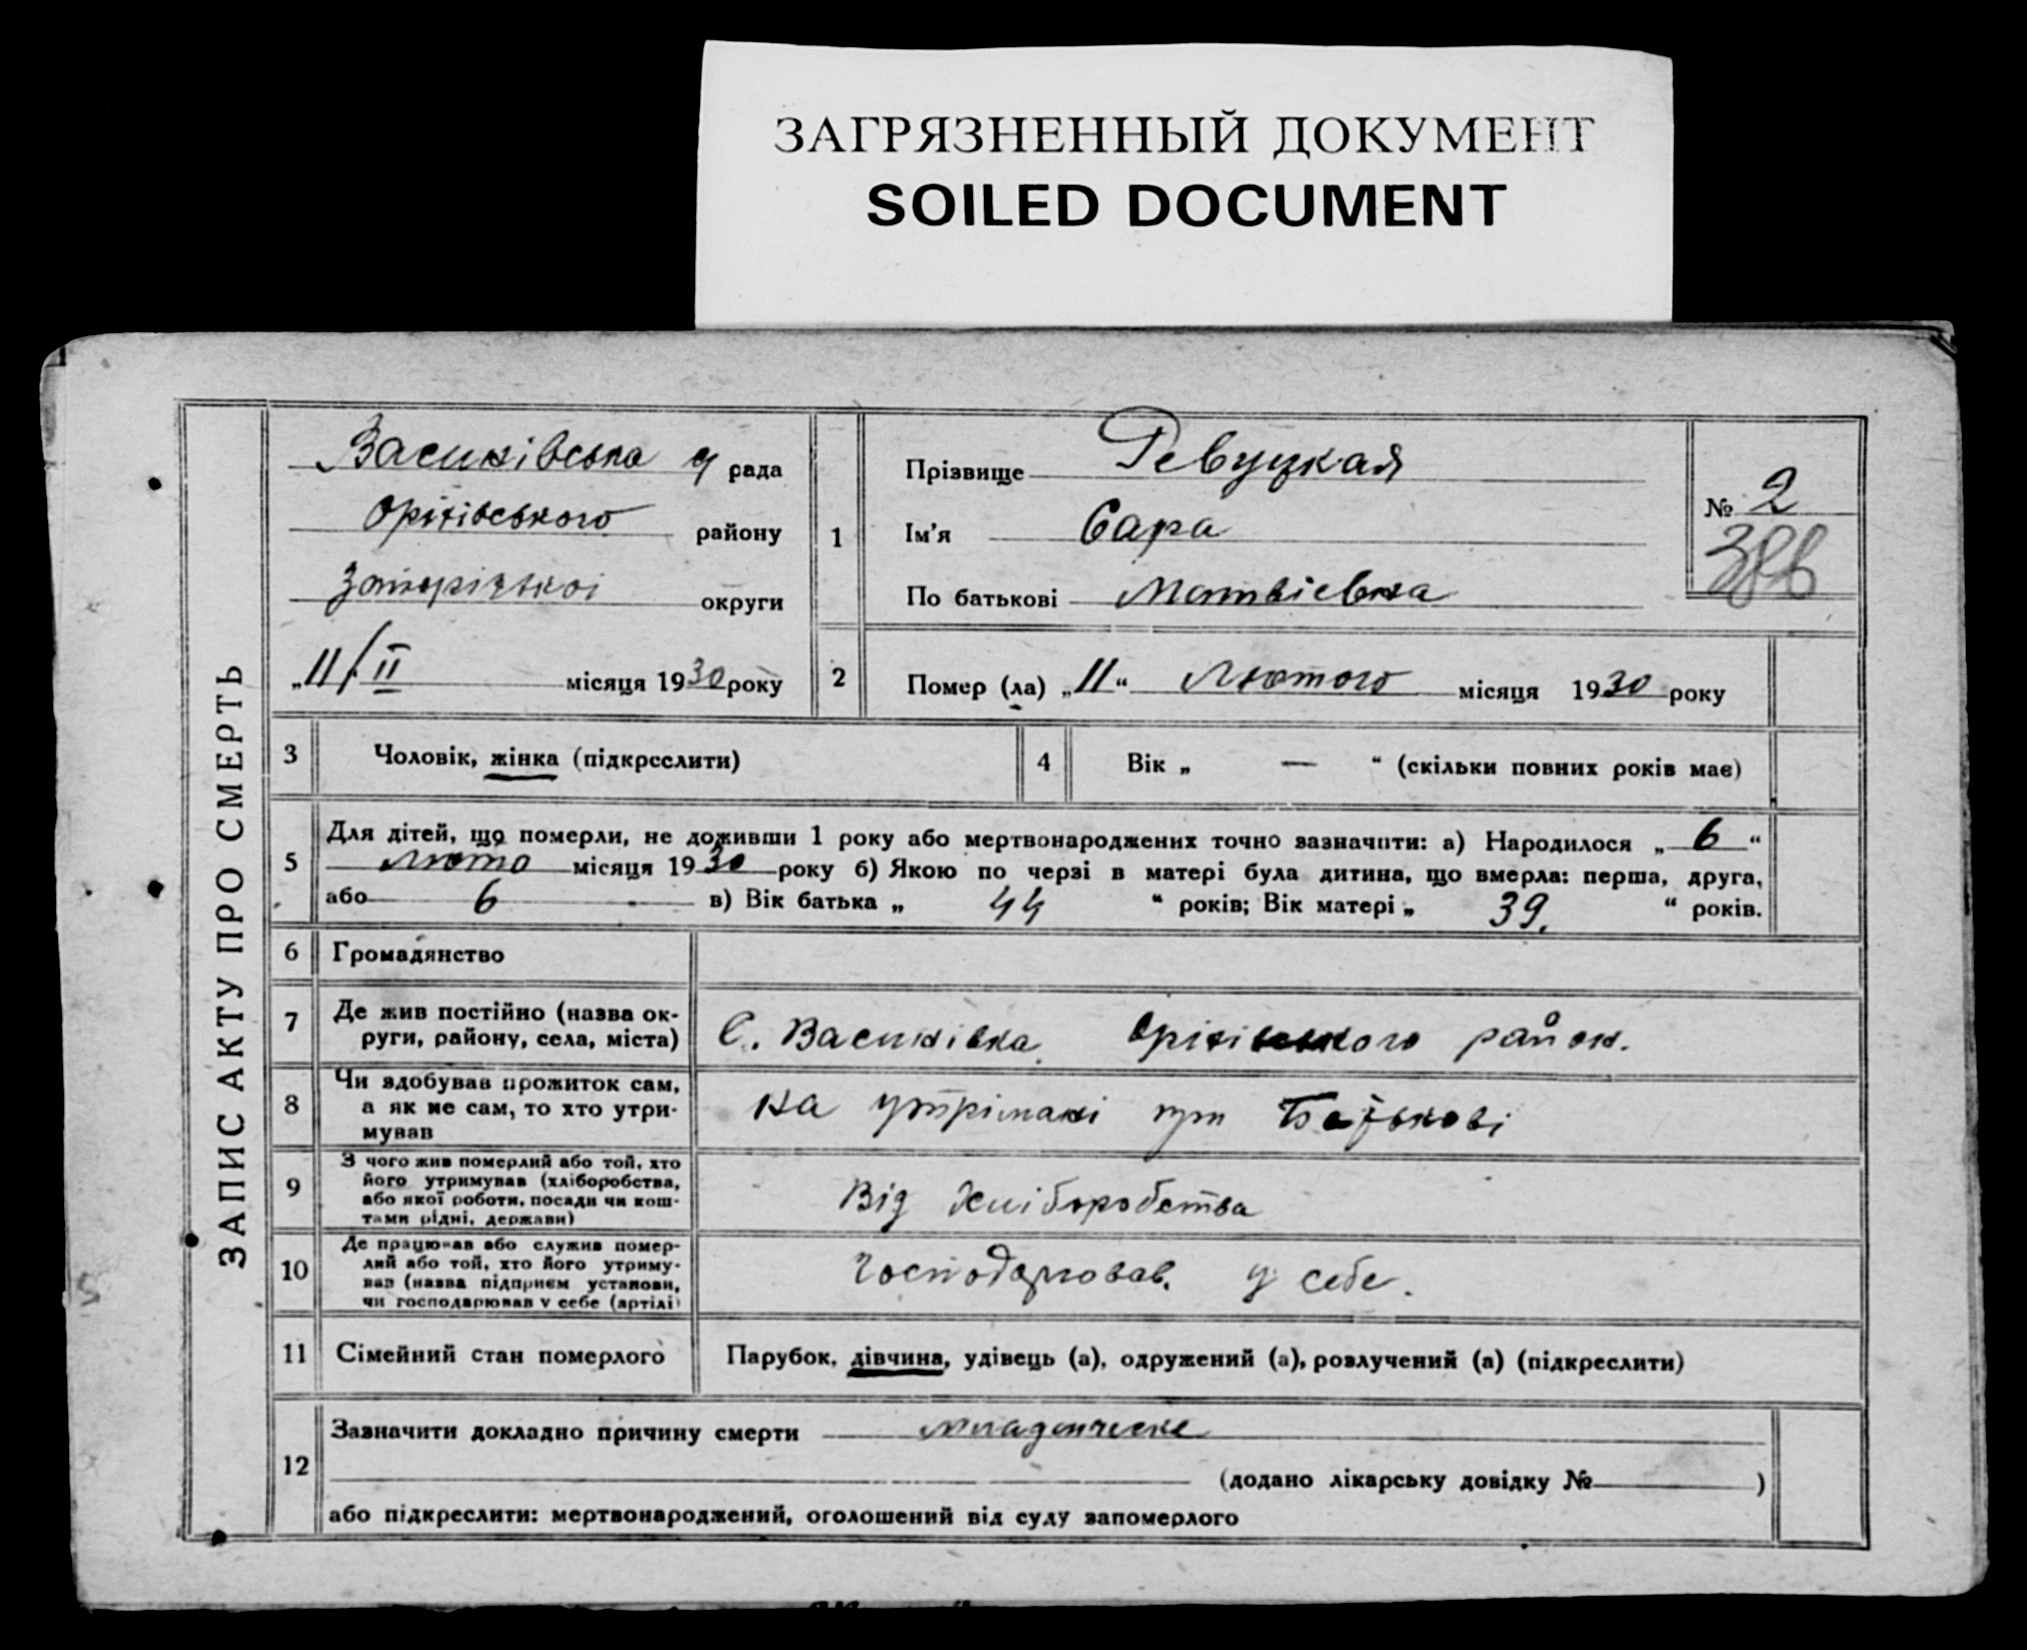 ЗАГРЯЗНЕННЫЙ ДОКУМЕНТ
SOILED DOCUMENT
ЗАПИС АКТУ ПРО СМЕРТЬ
Василівська с/ рада
Оріхівського району
Запорізької округи
„11/II місяця 1930 року
1
Прізвище Ревуцкая
Ім'я Сара
По батькові Матвієвна
№ 2
2 Помер (ла) „11“ Лютого місяця 1930 року
3 Чоловік, жінка (підкреслити)
4 Вік „ — “ (скільки повних років має)
5 Для дітей, що померли, не доживши 1 року або мертвонароджених точно зазначити: а) Народилося „ 6 “
Люто місяця 1930 року б) Якою по черзі в матері була дитина, що вмерла: перша, друга,
або 6 в) Вік батька „ 44 “ років; Вік матері „ 39. “ років.
6 Громадянство
7 Де жив постійно (назва ок-
руги, району, села, міста)
С. Василівка Оріхівського район.
8 Чи здобував прожиток сам,
а як не сам, то хто утри-
мував
на утрімані при Батькові
9 З чого жив померлий або той, хто
його утримував (хліборобства,
або якої роботи, посади чи кош-
тами рідні, держави)
Від Хліборобства
10 Де працював або служив помер-
лий або той, хто його утриму-
вав (назва підприєм установи,
чи господарював у себе (артілі)
Господарював у себе.
11 Сімейний стан померлого
Парубок, дівчина, удівець (а), одружений (а), розлучений (а) (підкреслити)
12 Зазначити докладно причину смерти младенческе
(додано лікарську довідку № )
або підкреслити: мертвонароджений, оголошений від суду запомерлого